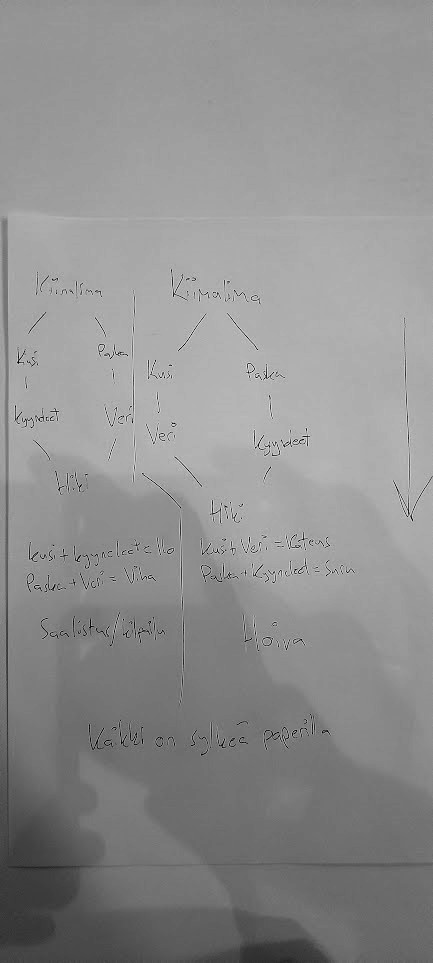 Kiimalima
Kusi
Paska
Kyyneleet
Veri
Hiki
Kusi + kyyneleet = Ilo
Paska + Veri = Viha
Saalistus/kilpailu
Kiimalima
Kusi
Paska
Veri
Kyyneleet
Hiki
Kusi + Veri =
Paska + Kyyneleet = Suru
Hoiva
Kaikki on sylkeä paperilla